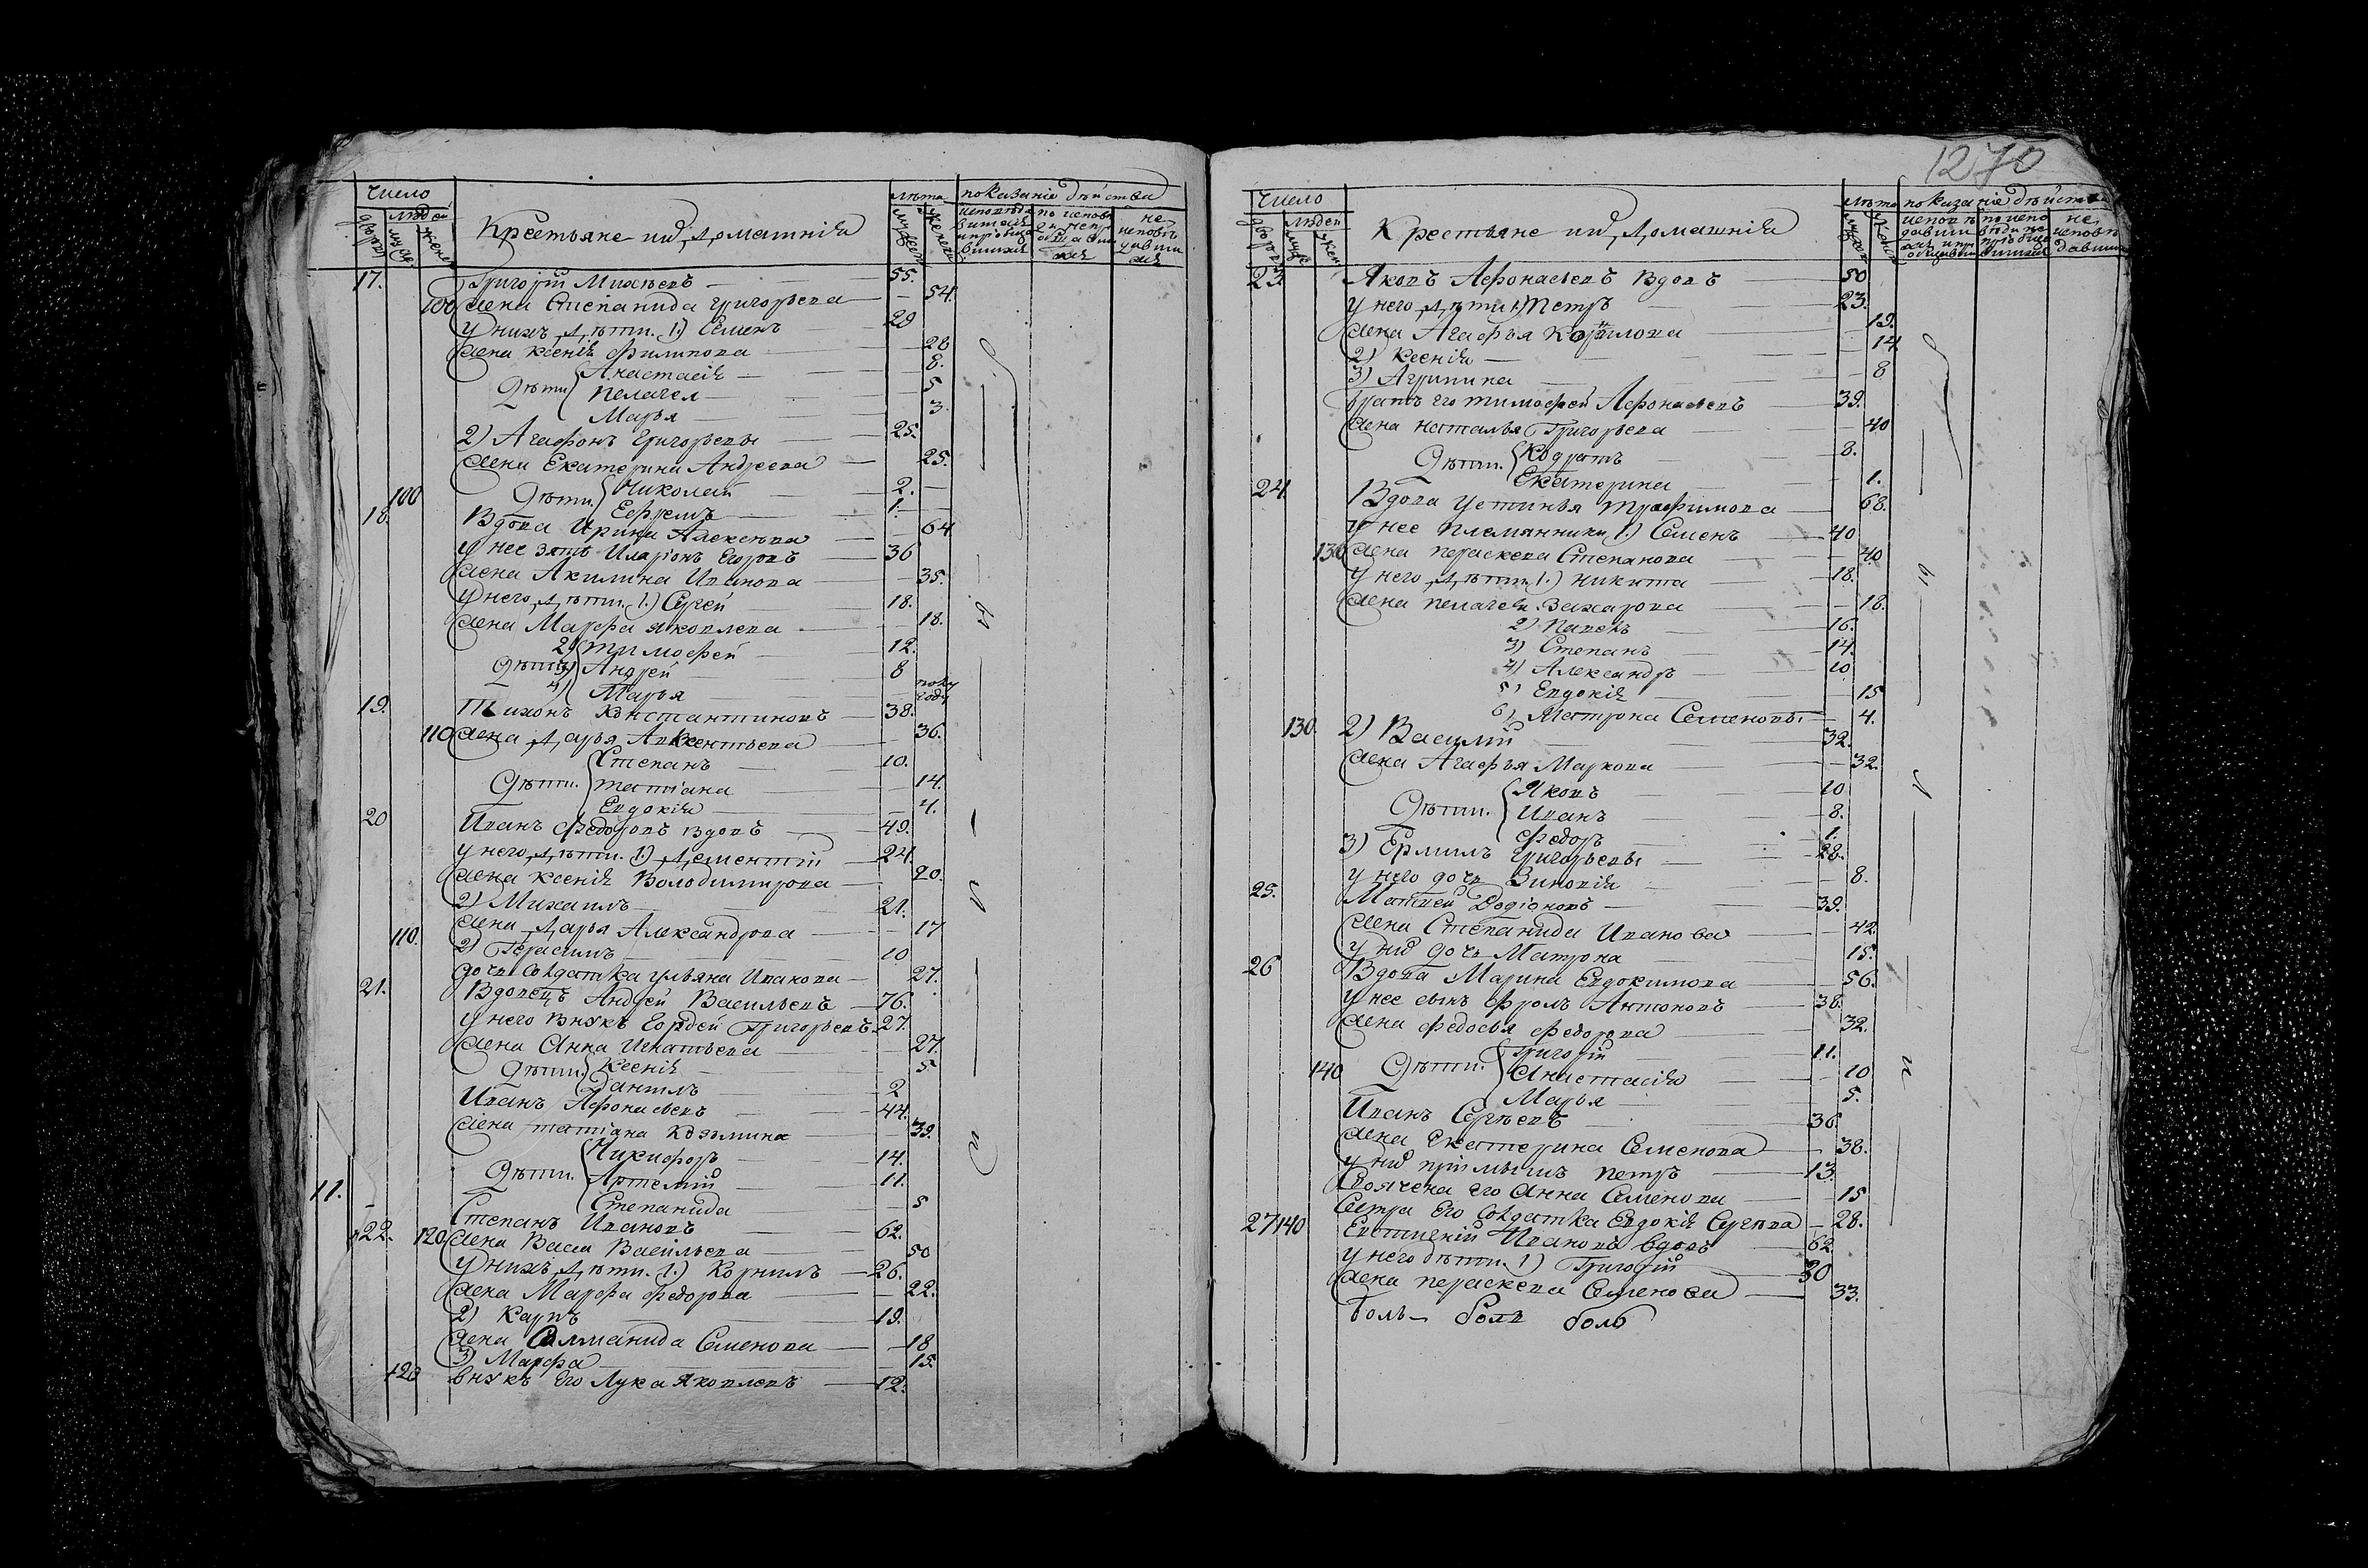 число лѣта показанiе дѣйства
дворовъ людей Крестьяне ихъ домашнiя мужеск женск
17. Григорiй Михѣевъ 55.
100 жена Степанида Григорьева 54.
У нихъ дѣти. 1.) Семенъ 29
жена Ксенiя Филипова 28
Анастасiя 8.
Дѣти Пелагея 5
Марья 3
2) Агафонъ Григорьевы 25.
жена Екатерина Андреева 25.
100 Дѣти Николай 2.
Ефремъ 1.
18. Вдова Ирина Алексѣева 64
у нее зять Иларiонъ Егоровъ 36
жена Акилина Иванова 35.
у него дѣти 1.) Сергей 18.
жена Марфа Яковлева 18.
2) Тимофей 12.
Дѣти 3) Андрей 8
4) Марья полу году
19. Тихонъ Константиновъ 38.
110 жена Дарья Авксентьева 36.
Степанъ 10.
Дѣти. Татiана 14.
Евдокiя 4.
20 Иванъ Федоровъ вдовъ 49.
у него дѣти. 1) Дементiй 24.
жена Ксенiя Володимирова 20.
2) Михаилъ 21.
жена Дарья Александрова 17
110. 2) Герасимъ 10
дочь солдатка Ульяна Иванова 27.
21. Вдовецъ Андрей Васильевъ 76.
у него внукъ Гордей Григорьевъ 27.
жена Анна Игнатьева 27.
Дѣти. Ксенiя 5
Данилъ 2
Иванъ Афонасьевъ 44.
жена Татiана Козьмина 39.
Никифоръ 14.
Дѣти. Артемiй 11.
11. Степанида 5
22. Степанъ Ивановъ 62.
120 жена Васса Васильева 50
У нихъ дѣти. 1.) Корнилъ 26.
жена Марфа Федорова 22.
2) Карпъ 19.
жена Семенова 18
3) Марфа 15.
120 внукъ его Лука Яковлевъ 12.
1270
число лѣта показанiе дѣйства
дворовъ людей Крестьяне ихъ домашнiя
23. Яковъ Афонасьевъ вдовъ 50
у него дѣти 1) Петръ 23.
жена Агафья 19.
2) Ксенiя 14
3) Агрипина 8
братъ его Тимофей Афонасьевъ 39.
жена Наталья Григорьева 40
Дѣти. Кодратъ 8.
Екатерина 1.
24. Вдова Устинья Трофимова 68.
у нее племянники 1.) Семенъ 40
130 жена Параскева Степанова 40.
у него дѣти 1.) Никита 18.
жена Пелагея Захарова 18.
2) Павелъ 16.
3) Степанъ 14.
4) Александръ 10
5) Евдокiя 15
6) Матрона Семеновы 4.
130. 2) Василiй 32.
жена Агафья Маркова 32.
Яковъ 10
Дѣти. Иванъ 8.
Федоръ 1.
3) Ермилъ Григорьевы 28.
у него дочь Зиновiя 8.
25. Матвей Родiоновъ 39.
жена Степанида Иванова 42.
у нихъ дочь Матрона 15.
26 Вдова Марина Евдокимова 56.
у нее сынъ Фролъ Антоновъ 38.
жена Федосья Федорова 32.
Григорiй 11.
140 Дѣти. Анастасiя 10
Марья 5.
Иванъ Сергѣевъ 36
жена Екатерина Семенова 38.
у нихъ прiимышъ Петръ 13.
Своячена его Анна Семенова 15
Сестра его солдатка Евдокiя Сергѣева 28.
27 140 Евстигнiй Ивановъ вдовъ 62
у него дѣти. 1) Григорiй 30
жена Параскева Семенова 33.
боль боль боль